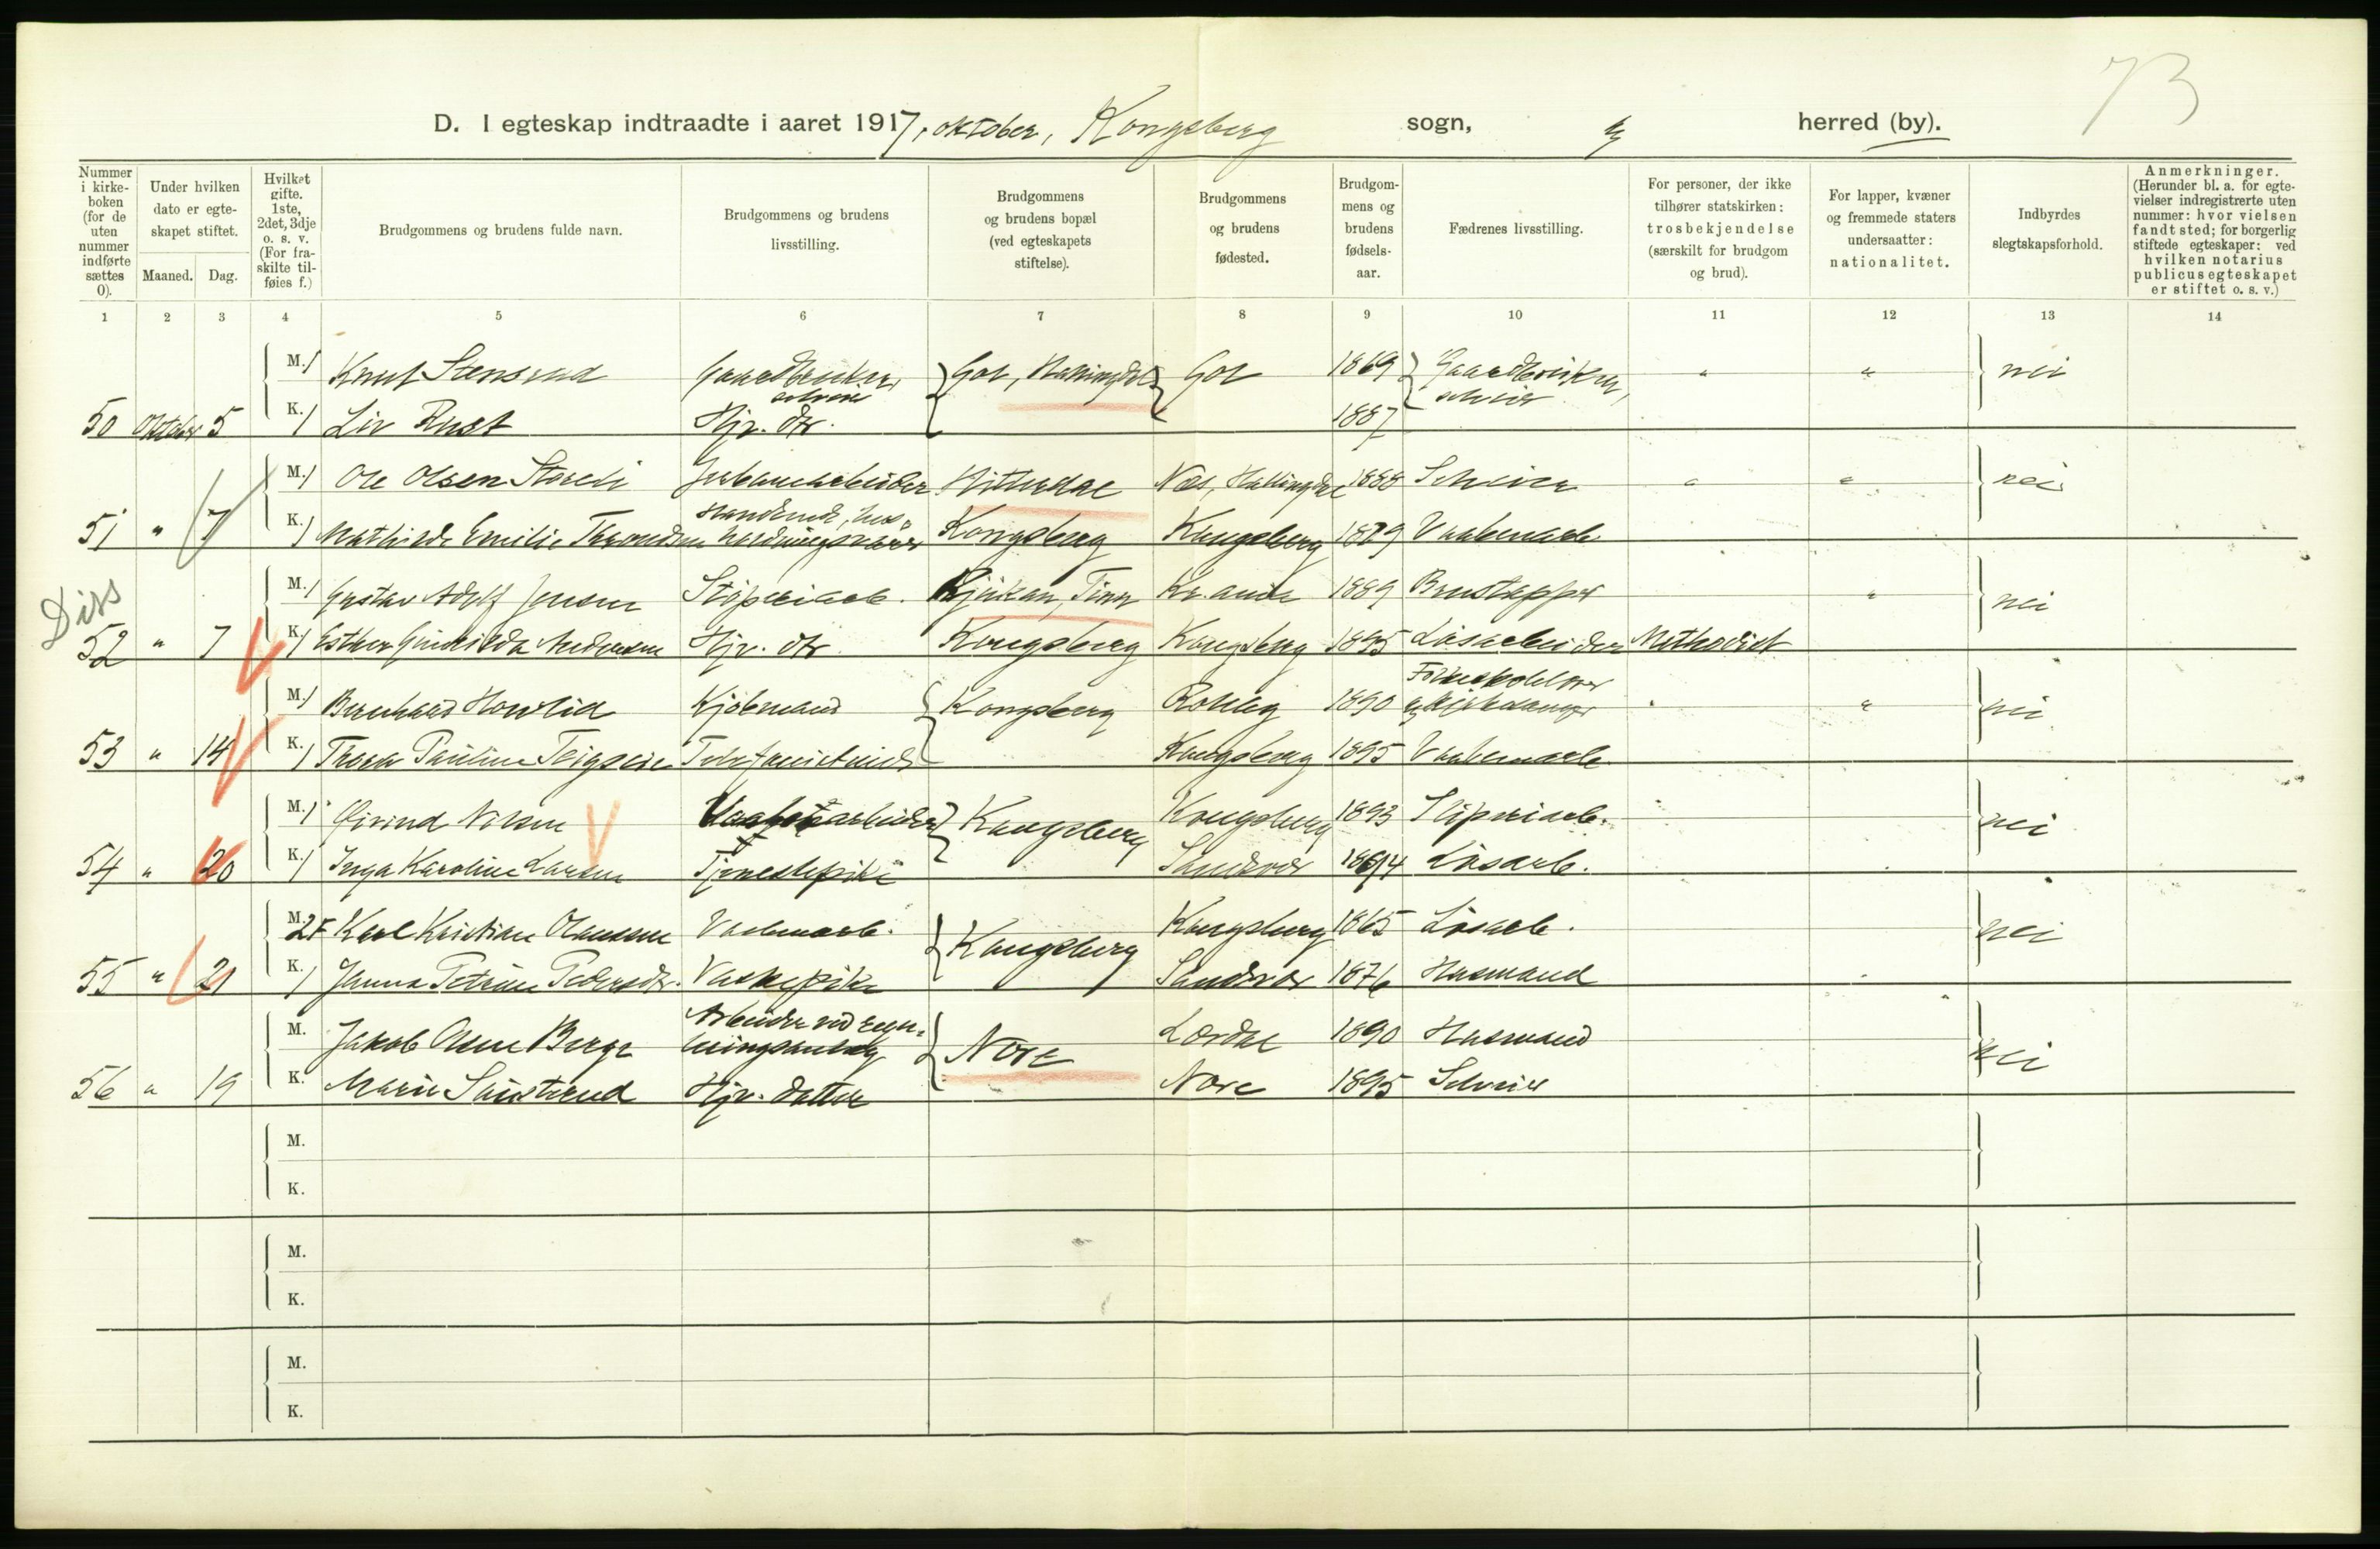 73
D. I egteskap indtraadte i aaret 1917, oktober, Kongsberg sogn, herred (by).
Nummer i kirkeboken (for de uten nummer indførte sættes 0).
Under hvilken dato er egteskapet stiftet.
Maaned. Dag.
Hvilket gifte. 1ste, 2det, 3dje o. s. v. (For fraskilte tilføies f.)
Brudgommens og brudens fulde navn.
Brudgommens og brudens livsstilling.
Brudgommens og brudens bopæl (ved egteskapets stiftelse).
Brudgommens og brudens fødested.
Brudgommens og brudens fødselsaar.
Fædrenes livsstilling.
For personer, der ikke tilhører statskirken: trosbekjendelse (særskilt for brudgom og brud).
For lapper, kvæner og fremmede staters undersaatter: nationalitet.
Indbyrdes slegtskapsforhold.
Anmerkninger. (Herunder bl. a. for egtevielser indregistrerte uten nummer: hvor vielsen fandt sted; for borgerlig stiftede egteskaper: ved hvilken notarius publicus egteskapet er stiftet o. s. v.)
1 2 3 4 5 6 7 8 9 10 11 12 13 14
M. 1 Knut Stensrud Gaardbruker, selveier Gol, Hallingdal Gol 1869 Gaardbruker, selveier " " nei
50 Oktober 5 K. 1 Liv Rust Hjv. dtr. 1887
M. 1 Ole Olsen Storeli Jernbanearbeider Hitterdal Næs, Hallingdal 1888 Selveier " " nei
51 " 7 K. 1 Mathilde Emilie Thomassen Kongsberg Kongsberg 1879 Vaabenarb.
Diss
M. 1 Gustav Adolf Jensen Støperiarb. Rjukan, Tinn Kr.ania 1889 " nei
52 " 7 K. 1 Esther Andersen Hjv. dtr. Kongsberg Kongsberg 1895 Løsarbeider Methodist
M. 1 Bernhard Howlid Kjøbmand Kongsberg Rollag 1890 Folkeskolelærer og kirkesanger " " nei
53 " 14 K. 1 Thora Pauline Teigseie Telefonistinde Kongsberg 1895 Vaabenarb.
M. 1 Øivind Nilsen Kongsberg Kongsberg 1893 Sliperiarb. nei
54 " 20 K. 1 Inga Karoline Larsen Tjenestepike Sandsvær 1894 Løsarb.
M. 2f Karl Kristian Olaussen Vaabenarb. Kongsberg Kongsberg 1865 Løsarb. nei
55 " 21 K. 1 Janna Petrine Pedersdtr. Vaskepike Sandsvær 1876 Husmand
M. Jakob Olsen Berge Arbeider ved reguleringsanlæg Nore Lærdal 1890 Husmand nei
56 " 19 K. Marie Hjv. datter Nore 1895 Selveier
M.
K.
M.
K.
M.
K.